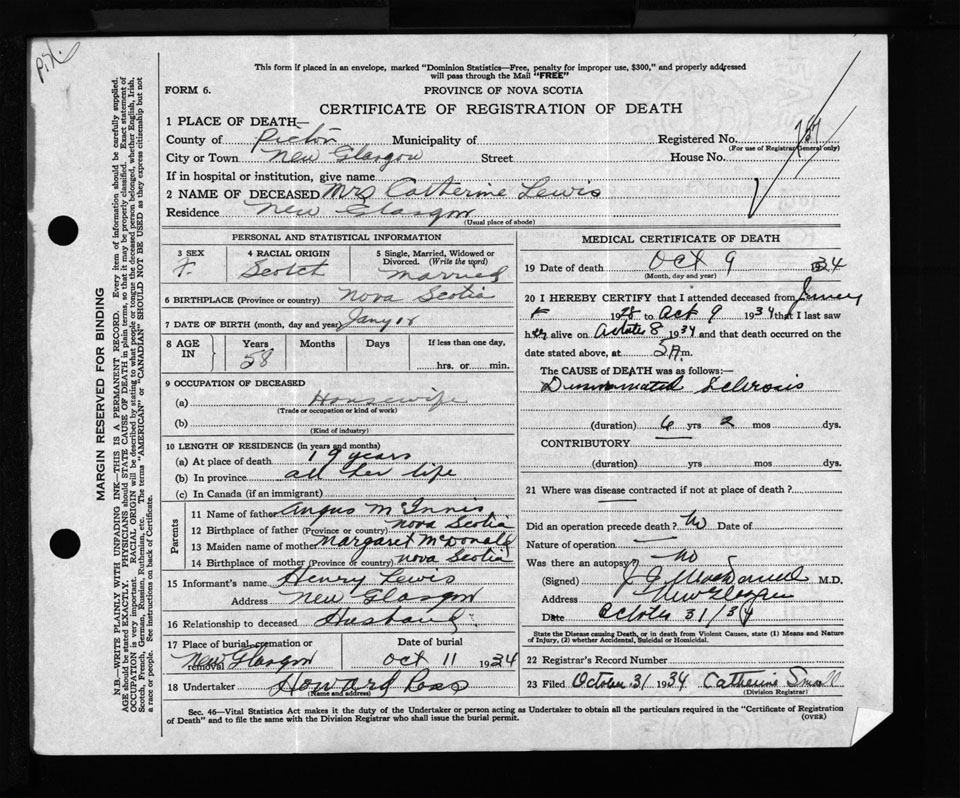 pix.
This form if placed in an envelope, marked "Dominion Statistics—Free, penalty for improper use, $300," and properly addressed
will pass through the Mail "FREE"
FORM 6.
PROVINCE OF NOVA SCOTIA
CERTIFICATE OF REGISTRATION OF DEATH
1 PLACE OF DEATH—
County of Pictou Municipality of Registered No.
(For use of Registrar General only)
City or Town New Glasgow Street House No.
If in hospital or institution, give name
2 NAME OF DECEASED Mrs Catherine Lewis
Residence New Glasgow
(Usual place of abode)
PERSONAL AND STATISTICAL INFORMATION
3 SEX
F.
4 RACIAL ORIGIN
Scotch
5 Single, Married, Widowed or
Divorced. (Write the word)
Married
6 BIRTHPLACE (Province or country) Nova Scotia
7 DATE OF BIRTH (month, day and year) Jany 18
8 AGE
IN
Years
58
Months
Days
If less than one day,
hrs. or min.
9 OCCUPATION OF DECEASED
(a) Housewife
(Trade or occupation or kind of work)
(b)
(Kind of industry)
10 LENGTH OF RESIDENCE (in years and months)
(a) At place of death 19 years
(b) In province all her life
(c) In Canada (if an immigrant)
Parents
11 Name of father Angus McInnis
12 Birthplace of father (Province or country) Nova Scotia
13 Maiden name of mother Margaret McDonald
14 Birthplace of mother (Province or country) Nova Scotia
15 Informant's name Henry Lewis
Address New Glasgow
16 Relationship to deceased Husband
17 Place of burial, cremation or
removal New Glasgow
Date of burial
Oct 11 1934
18 Undertaker Howard Ross
(Name and address)
MEDICAL CERTIFICATE OF DEATH
19 Date of death Oct 9 34
(Month, day and year)
20 I HEREBY CERTIFY that I attended deceased from
1928 to Oct 9 1934 that I last saw
her alive on October 8 1934 and that death occurred on the
date stated above, at 5 A.m.
The CAUSE of DEATH was as follows:—
Disseminated Sclerosis
(duration) 6 yrs 2 mos dys.
CONTRIBUTORY
(duration) yrs mos dys.
21 Where was disease contracted if not at place of death?
Did an operation precede death? No Date of
Nature of operation
Was there an autopsy? No
(Signed) M.D.
Address New Glasgow
Date October 31/34
State the Disease causing Death, or in death from Violent Causes, state (1) Means and Nature
of Injury, (2) whether Accidental, Suicidal or Homicidal.
22 Registrar's Record Number
23 Filed October 31 1934 Catherine Small
(Division Registrar)
Sec. 46—Vital Statistics Act makes it the duty of the Undertaker or person acting as Undertaker to obtain all the particulars required in the "Certificate of Registration
of Death" and to file the same with the Division Registrar who shall issue the burial permit.
(OVER)
MARGIN RESERVED FOR BINDING
N.B.—WRITE PLAINLY WITH UNFADING INK—THIS IS A PERMANENT RECORD. Every item of information should be carefully supplied.
AGE should be stated EXACTLY. PHYSICIANS should STATE CAUSE OF DEATH in plain terms, so that it may be properly classified. Exact statement of
OCCUPATION is very important. RACIAL ORIGIN will be described by stating to what people or tongue the deceased person belonged, whether English, Irish,
Scotch, French, German, Russian, Ruthenian, etc. The terms "AMERICAN" or "CANADIAN" SHOULD NOT BE USED as they express citizenship but not
a race or people. See instructions on back of Certificate.